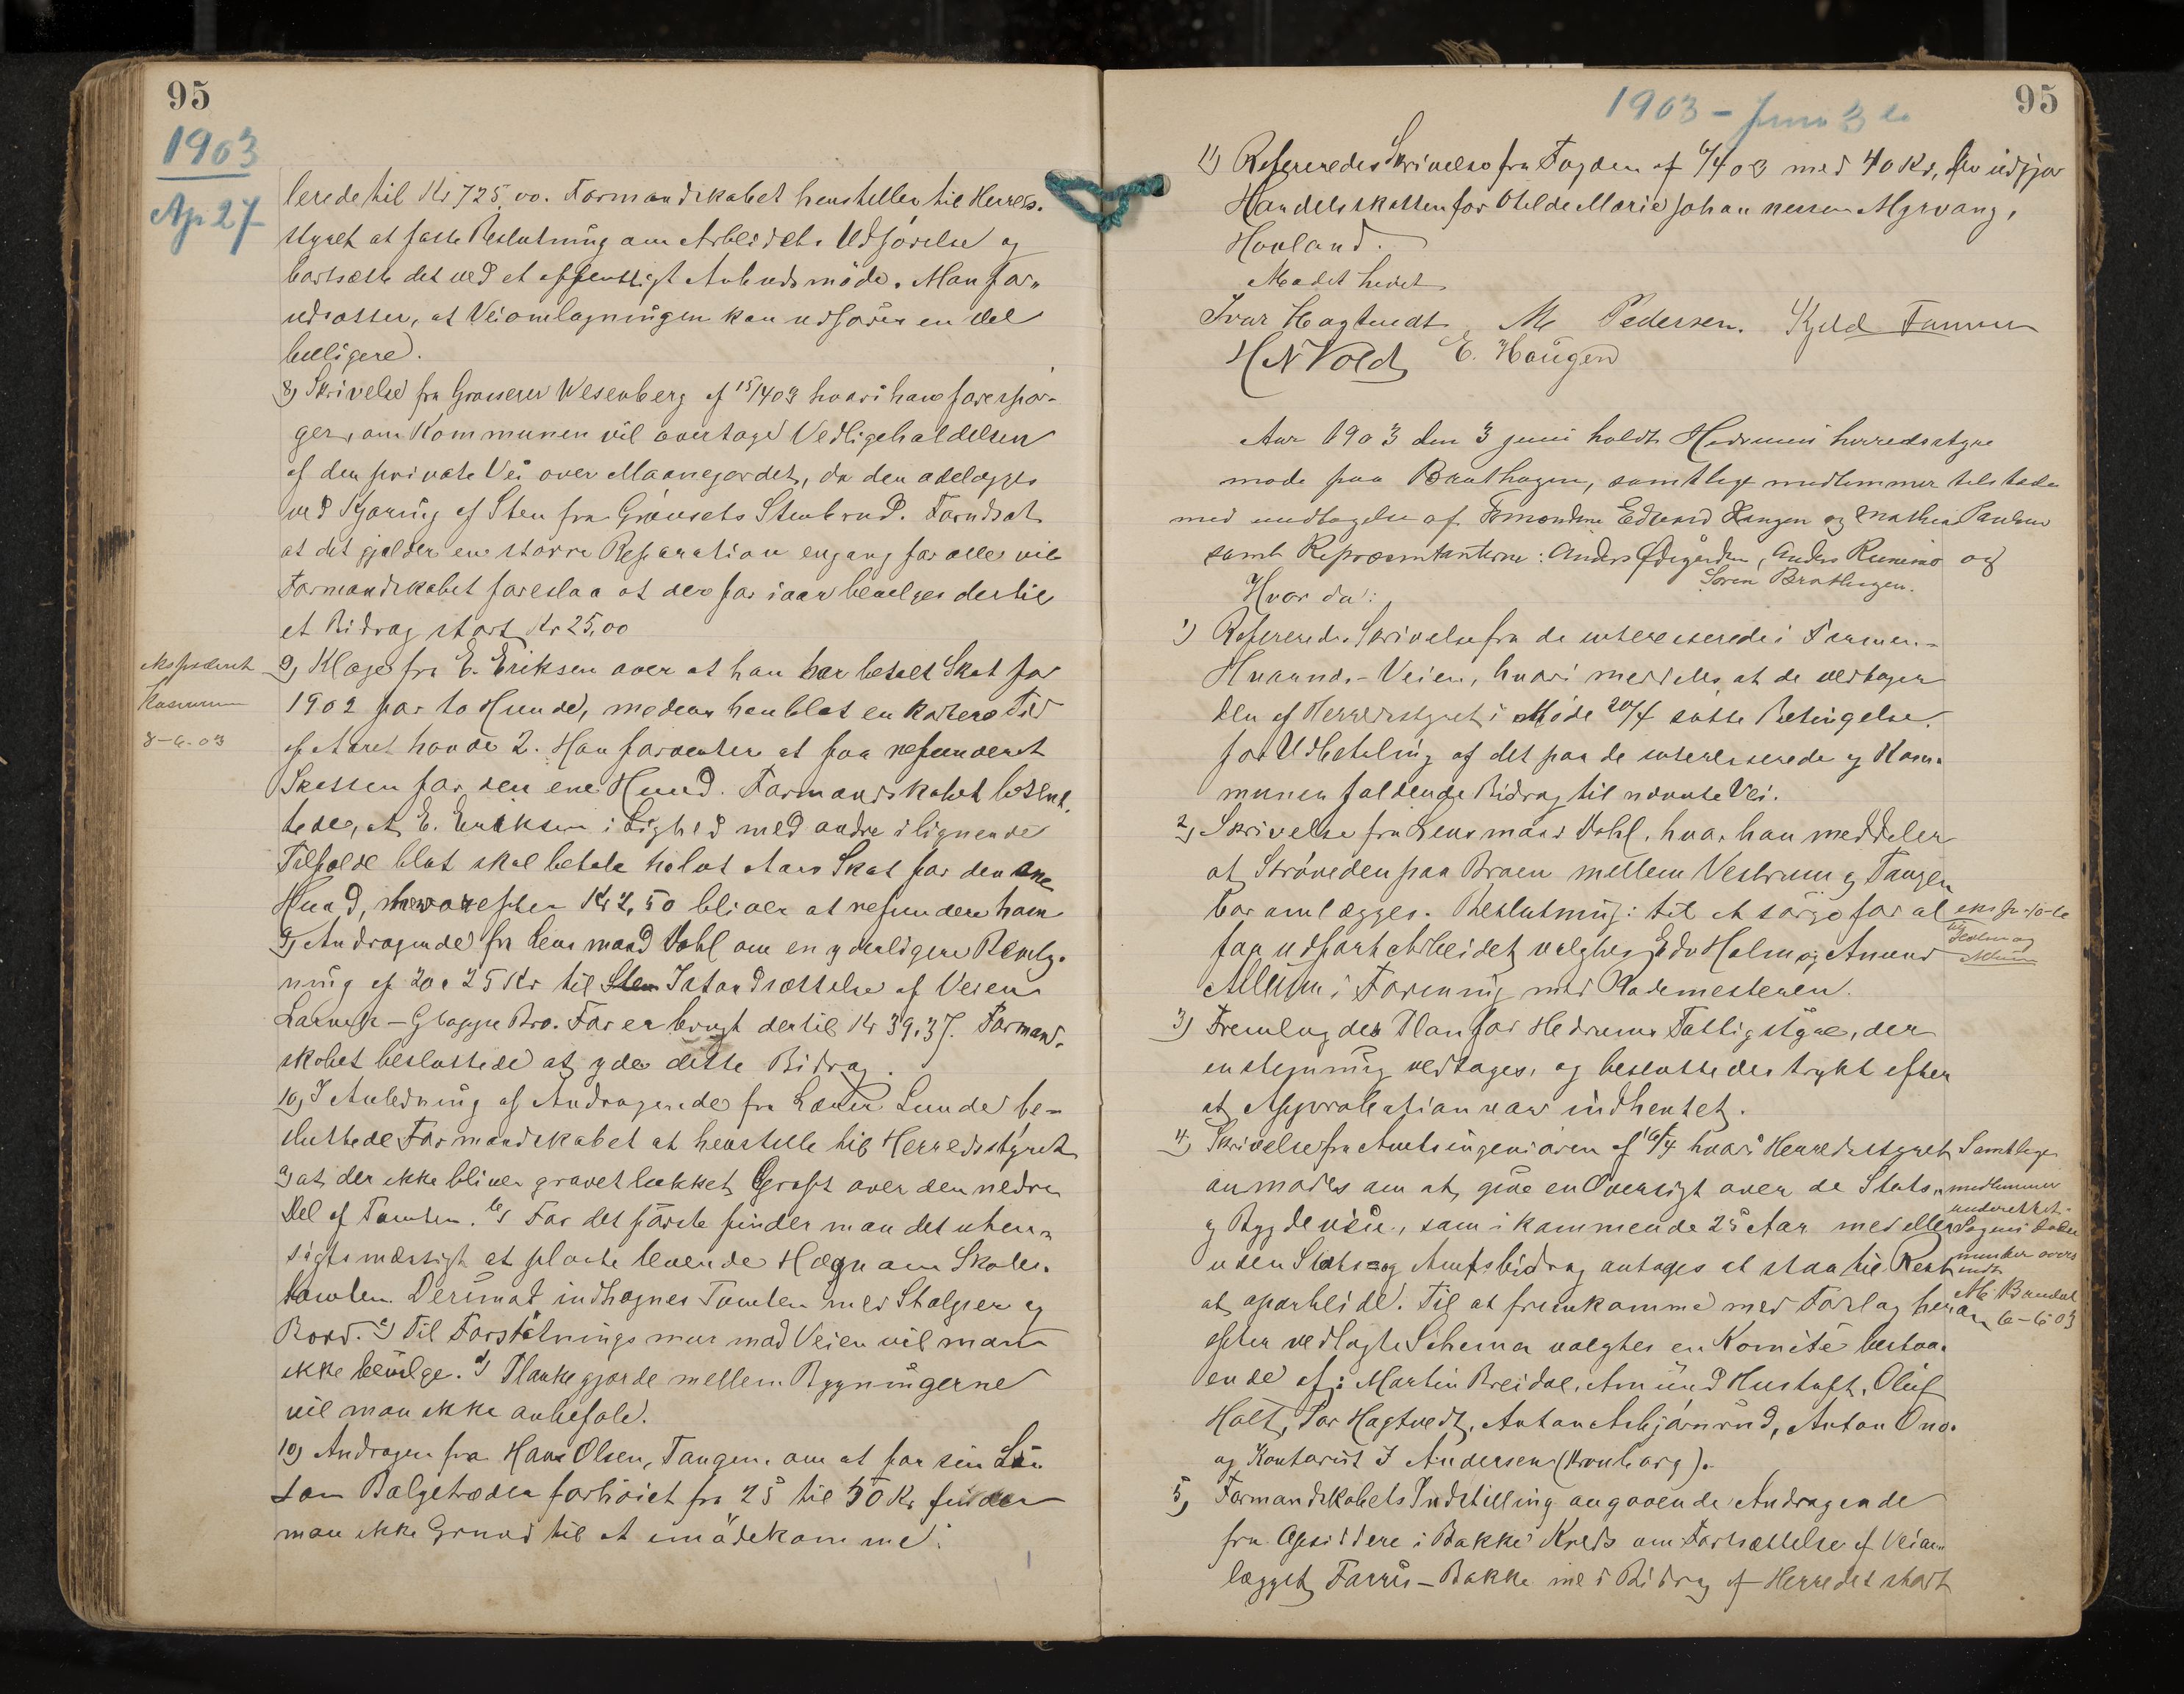 95
1903
Ap 27
lerede til Kr 725,00. Formandskabet henstiller til Herreds-
styret at fatte Beslutning om Arbeidets Udførelse og
bortsætte det ved et offentligt Anbudsmøde. Man for-
udsætter, at Veiomlægningen kan udføres en del
billigere.
8) Skrivelse fra Grosserer Wesenberg af 15/4 03 hvori han forespør-
ger, om Kommunen vil overtage Vedligeholdelsen
af den private Vei over Maanejordet, da den ødelægges
ved Kjøring af Sten fra Grønsets Stenbrud. Forudsat
at det gjælder en større Reparation engang for alle vil
Formandskabet foreslaa at der for iaar bevilges dertil
et Bidrag stort Kr 25,00
ekspederet
Kasserern
8-6-03
9) Klage fra E. Eriksen over at han har betalt Skat for
1902 for to Hunde, medens han blot en kortere Tid
af Aaret havde 2. Han forventer at faa refunderet
Skatten for den ene Hund. Formandskabet beslut-
tede, at E. Eriksen i Lighed med andre i lignende
Tilfælde blot skal betale halvt Aars Skat for den ene
Hund, hvorefter Kr 2,50 bliver at refundere ham
9) Andragende fra Lensmand Dahl om en yderligere Bevilg-
ning af 20 a 25 Kr til Istandsættelse af Veien
Larvik – Gloppe Bro. Før er brugt dertil Kr 39,37. Formand-
skabet besluttede at yde dette Bidrag.
10) I Anledning af Andragende fra Lærer Lunde be-
sluttede Formandskabet at henstille til Herredsstyret
a) at der ikke bliver gravet lukket Grøft over den nedre
Del af Tomten. b) For det første finder man det uhen-
sigtsmæssigt at plante levende Hegn om Skole-
tomten. Derimot indhegnes Tomten med Stolper og
Bord. c) Til Forstøtningsmur mod Veien vil man
ikke bevilge. d) Plankegjærde mellem Bygningerne
vil man ikke anbefale.
10) Andragen fra Hans Olsen, Tangen, om at faa sin Løn
som Bælgetræder forhøiet fra 25 til 50 Kr finder
man ikke Grund til at imødekomme.
1903 – Juni 3 de
95
11) Refereredes Skrivelse fra Fogden af 6/4 03 med 40 Kr, der udgjør
Handelsskatten for Otilde Marie Johannessen Myrvang,
Hovland.
Mødet hævet
Ivar Hagtvedt, M Pedersen. Kjeld Fannem
H N Vold E. Haugen
Aar 1903 den 3 juni holdt Hedrum herredsstyre
møde paa Brathagen, samtlige medlemmer tilstede
med undtagelse af Formændene Edvard Haugen og Mathias Paulsen
samt Repræsentanterne: Anders Ødegården, Anders Rimeno og
Søren Brathagen.
Hvor da:
1) Refereredes Skrivelse fra de interesserede i Farmen-
Hvaands-Veien, hvori meddeles, at de vedtager
den af Herredsstyret i Møde 20/4 satte Betingelse
for Udbetaling af det paa de interesserede og Kom-
munen faldende Bidrag til nævnte Vei.
2) Skrivelse fra Lensmand Dahl, hvor han meddeler
at Strøveden paa Broen mellem Vestrum og Tangen
bør omlægges. Beslutning: til at sørge for at
faa udført Arbeidet valgtes Edv Holm og Amund
Allum i Forening med Rodemesteren.
eksp. 10-6
til
Holm og
Allum
3) Fremlagdes Plan for Hedrums Fattigstyre, der
enstemmig vedtages, og besluttedes trykt efter
at Approbation var indhentet.
4) Skrivelse fra Amtsingeniøren af 16/4 hvori Herredsstyret
anmodes om at give en Oversigt over de Stats-
og Bygdeveie, som i kommende 25 Aar med eller
uden Stats- og Amtsbidrag antages at staa til Rest
at oparbeide. Til at fremkomme med Forslag herom
efter vedlagte Schema valgtes en Komite bestaa-
ende af: Martin Breidal, Amund Hustoft, Oluf
Holt, Tor Hagtvedt, Anton Asbjørnrød, Anton Ono-
og Kontorist J Andersen (Kronborg).
Samtlige
medlemmer
underrettet.
6-6 03
5) Formandskabets Indstilling angaaende Andragende
fra Opsiddere i Bakke Kreds om Fortsættelse af Veian-
lægget Farris – Bakke med Bidrag af Herredet stort